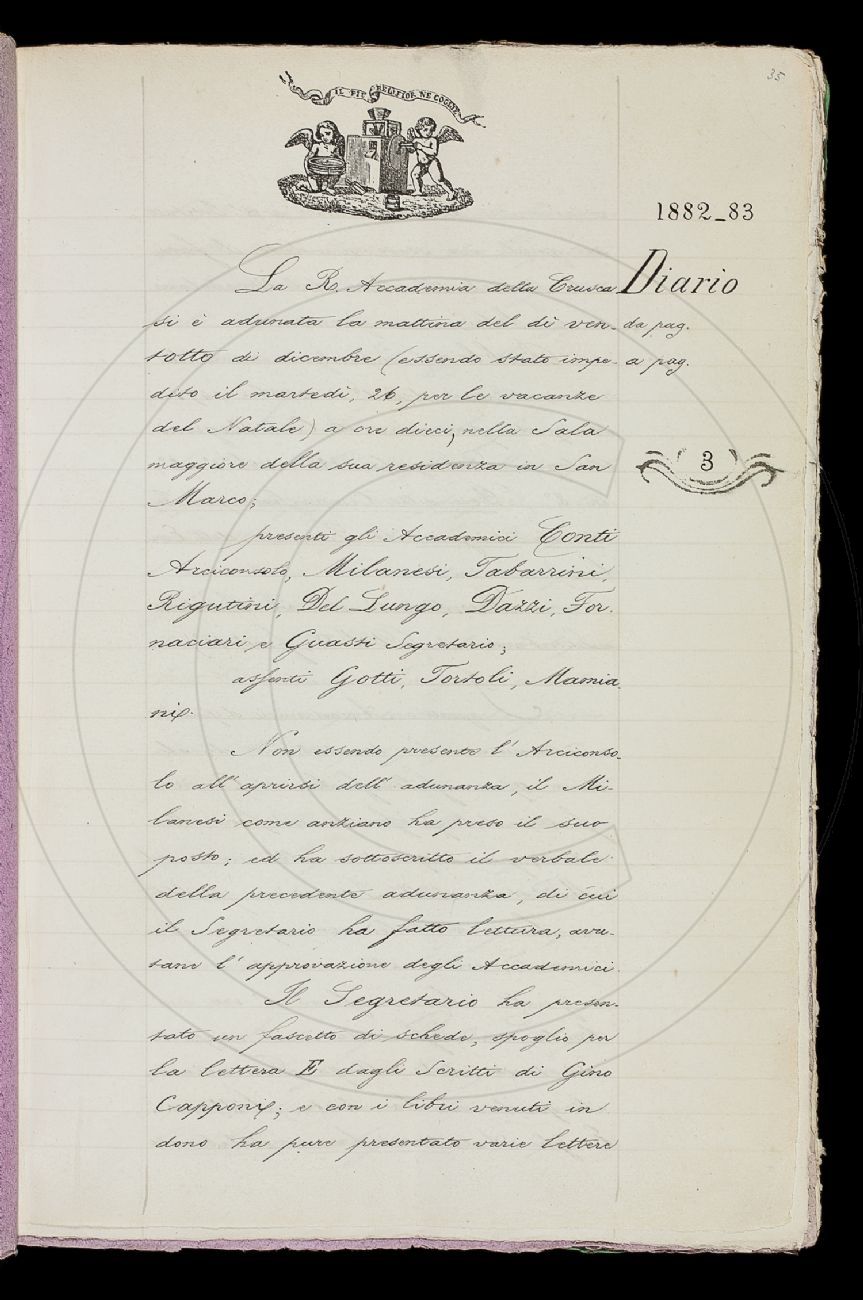 35
IL PIÙ BEL FIOR NE COGLIE
1882_83
Diario
da pag.
a pag.
3
La R. Accademia della Crusca
si è adunata la mattina del dì ven-
totto di dicembre (essendo stato impe-
dito il martedì, 26, per le vacanze
del Natale) a ore dieci, nella Sala
maggiore della sua residenza in San
Marco;
presenti gli Accademici Conti
Arciconsolo, Milanesi, Tabarrini,
Rigutini, Del Lungo, Dazzi, For-
naciari, e Guasti Segretario;
assenti Gotti, Tortoli, Mamia-
ni.
Non essendo presente l' Arciconso-
lo all' aprirsi dell' adunanza, il Mi-
lanesi come anziano ha preso il suo
posto; ed ha sottoscritto il verbale
della precedente adunanza, di cui
il Segretario ha fatto lettura, avu-
tane l' approvazione degli Accademici.
Il Segretario ha presen-
tato un fascetto di schede, spoglio per
la lettera E dagli Scritti di Gino
Capponi; e con i libri venuti in
dono ha pure presentato varie lettere